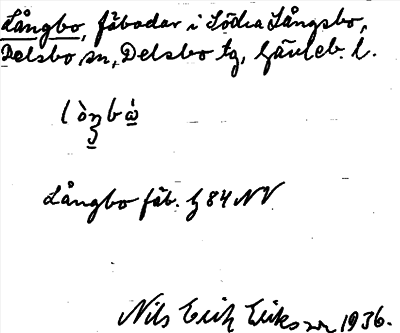 Långbo, fäbodar i Södra Långsbo,
Delsbo sn, Delsbo tg, Gävleb. l.
Långbo fäb. G 84 NV
Nils Erik Eriksson 1936.